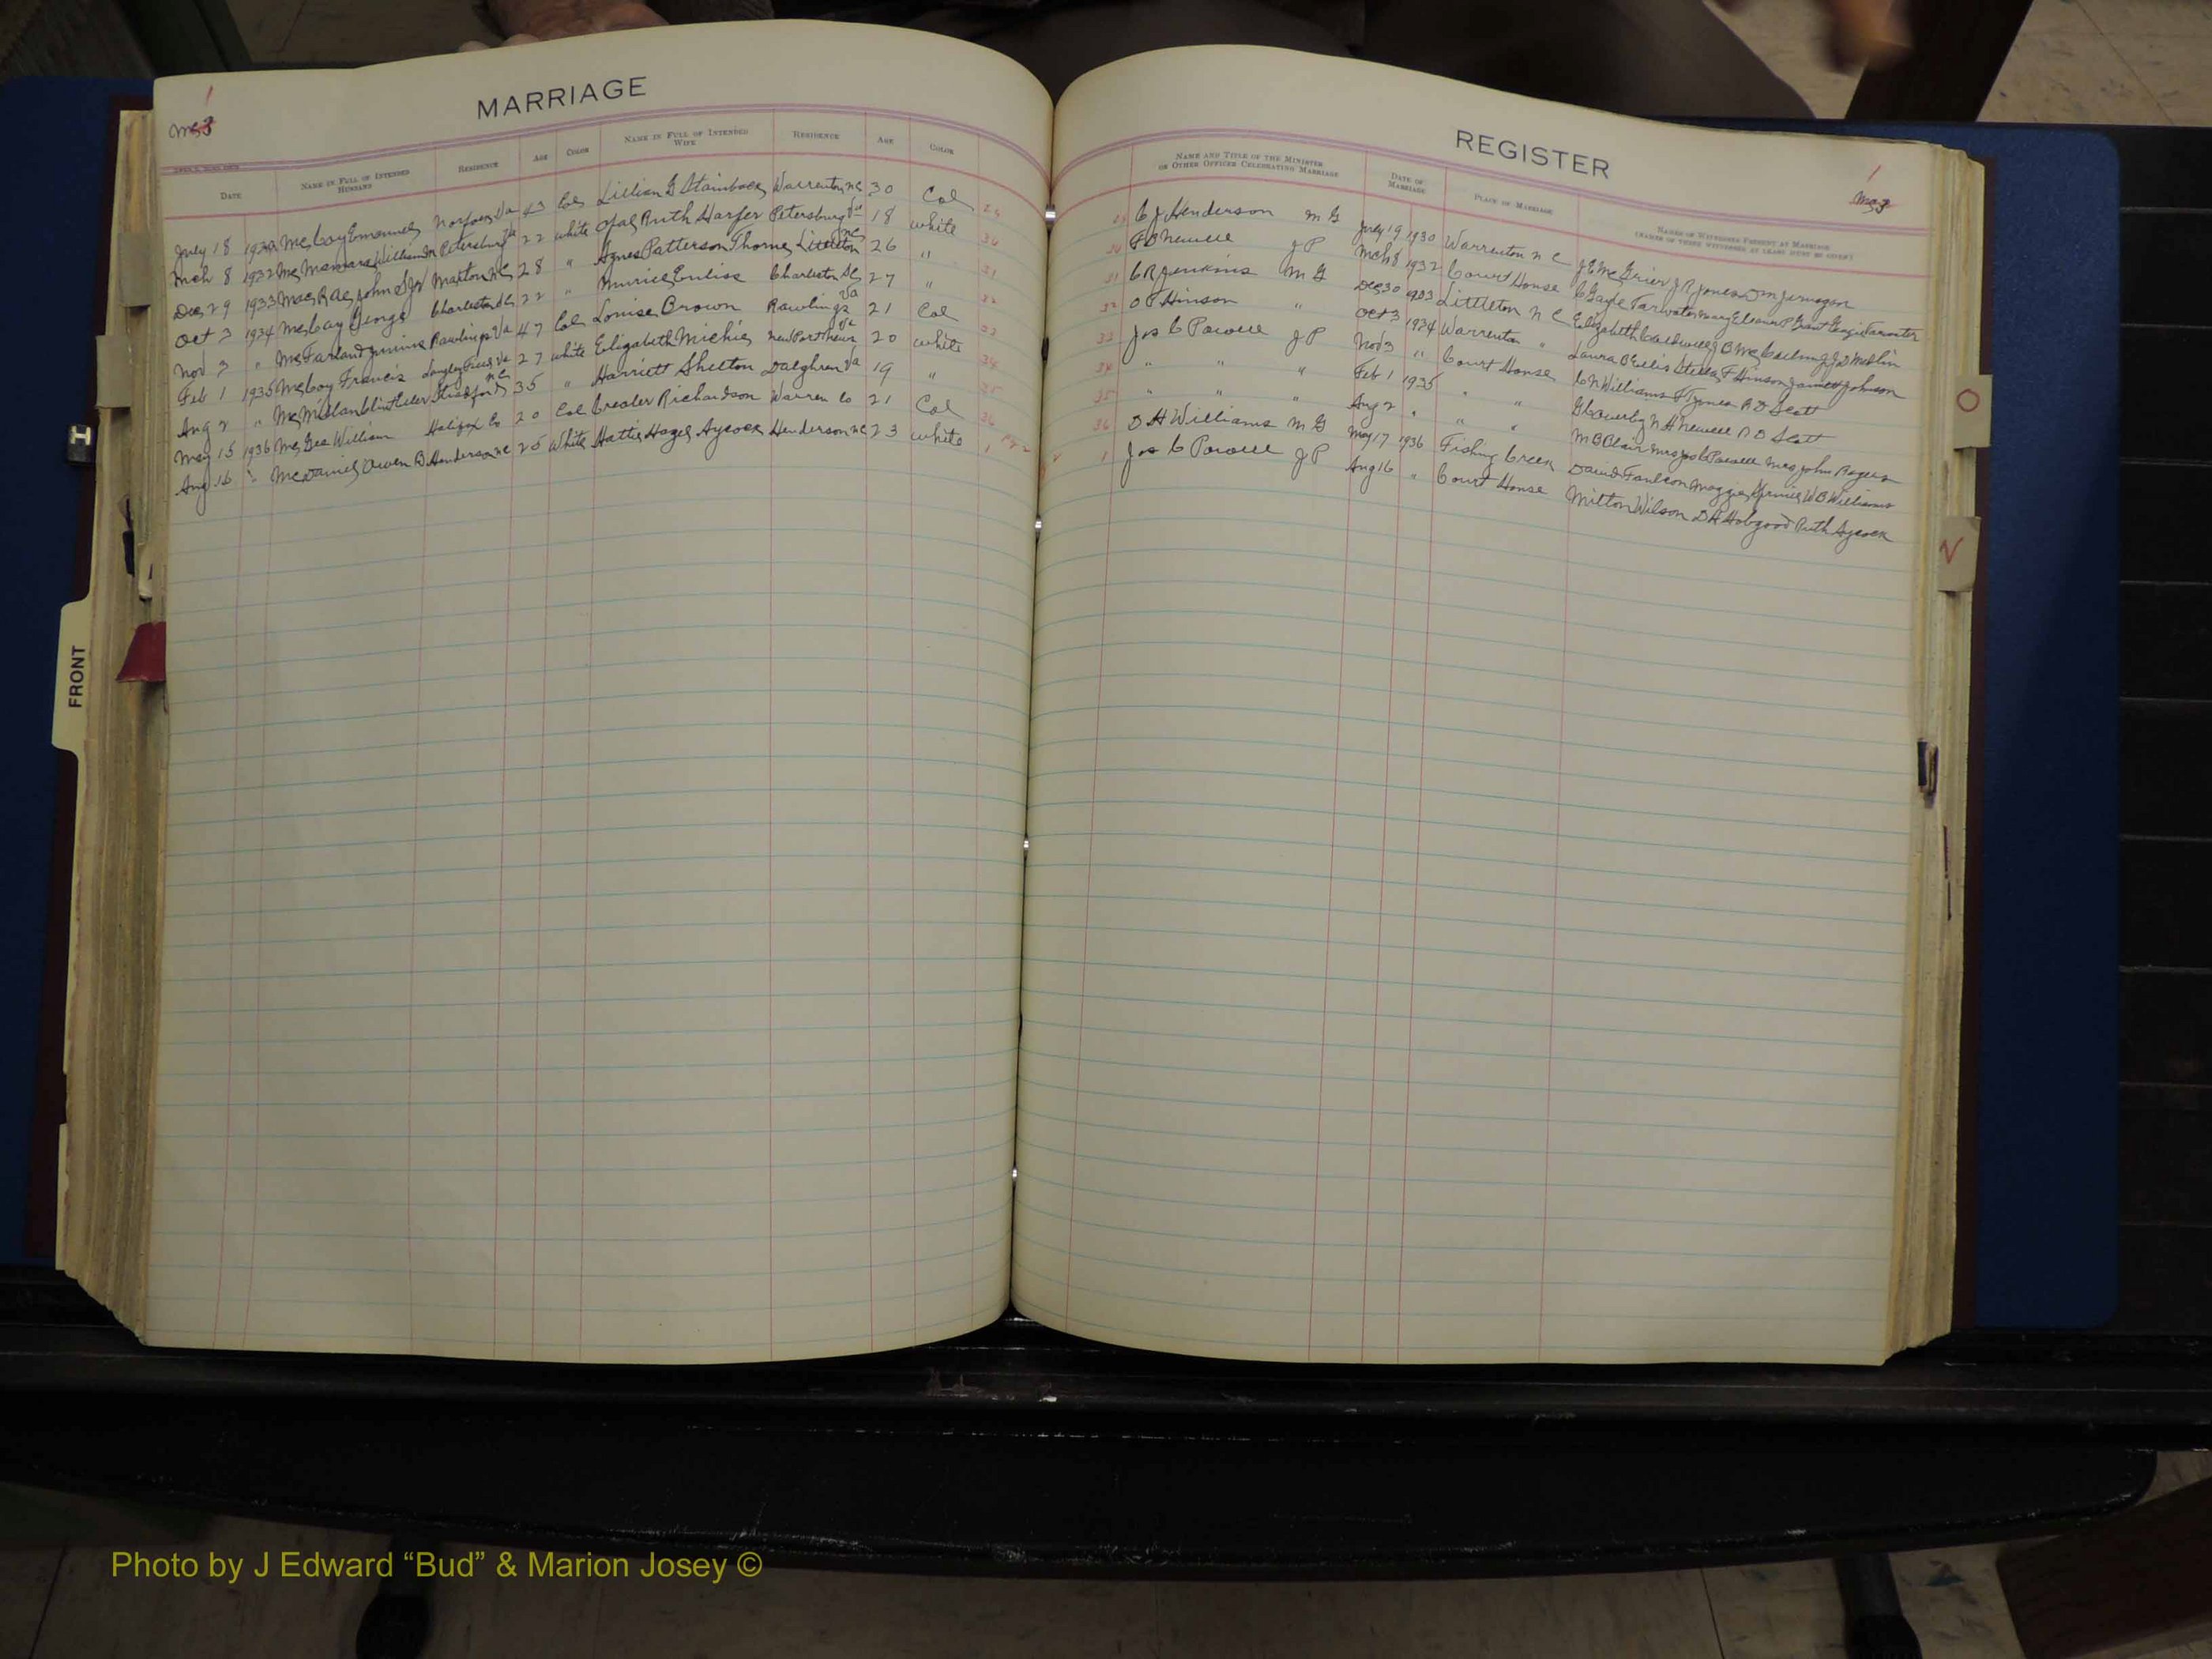 1
Mc 3
MARRIAGE
DATE NAME IN FULL OF INTENDED HUSBAND RESIDENCE AGE COLOR NAME IN FULL OF INTENDED WIFE RESIDENCE AGE COLOR
July 18 1930 McCoy Emanuel Norfolk Va 43 Col Lillian G Stainback Warrenton NC 30 Col 29
Mch 8 1932 McMamara William Petersburg Va 22 white Opal Ruth Harper Petersburg Va 18 white 30
Dec 29 1933 MacRae John Maxton NC 28 " Agnes Patterson Thorne Littleton NC 26 " 31
Oct 3 1934 McCay George Charleston SC 22 " Charleston SC 27 " 32
Nov 3 " McFarland Junius Rawlings Va 47 Col Louise Brown Rawlings Va 21 Col 33
Feb 1 1935 McCoy Francis Langley Field Va 27 white Elizabeth Michie Newport News Va 20 white 34
Aug 2 " NC 35 " Harriett Shelton Va 19 " 35
May 15 1936 McGee William Halifax Co 20 Col Creater Richardson Warren Co 21 Col 36
Aug 16 " McDaniel Owen B Henderson NC 25 white Hattie Hazel Aycock Henderson NC 23 white 1
REGISTER
1
NAME AND TITLE OF THE MINISTER OR OTHER OFFICER CELEBRATING MARRIAGE DATE OF MARRIAGE PLACE OF MARRIAGE NAMES OF WITNESSES PRESENT AT MARRIAGE
29 C J Henderson M G July 19 1930 Warrenton N C J E McGrier J R Jones D M Jernagan
30 F B Newell J P Mch 8 1932 Court House C Gayle Tarwater Mary Eleanor P Grant Tarwater
31 C R Jenkins M G Dec 30 1933 Littleton N C Elizabeth J D Medlin
32 O P Hinson " Oct 3 1934 Warrenton " Laura B Ellis Stella F Hinson James Johnson
33 Jos C Powell J P Nov 3 " Court House C N Williams R D Scott
34 " " " Feb 1 1935 " " G C Overby N H Newell R D Scott
35 " " " Aug 2 " " " M B Blair Mrs Jos C Powell Mrs John Rogers
36 D H Williams M G May 17 1936 Fishing Creek David Faulcon Maggie W B Williams
1 Jos C Powell J P Aug 16 " Court House Milton Wilson D H Hobgood Ruth Aycock
FRONT
O
Photo by J Edward “Bud” & Marion Josey ©